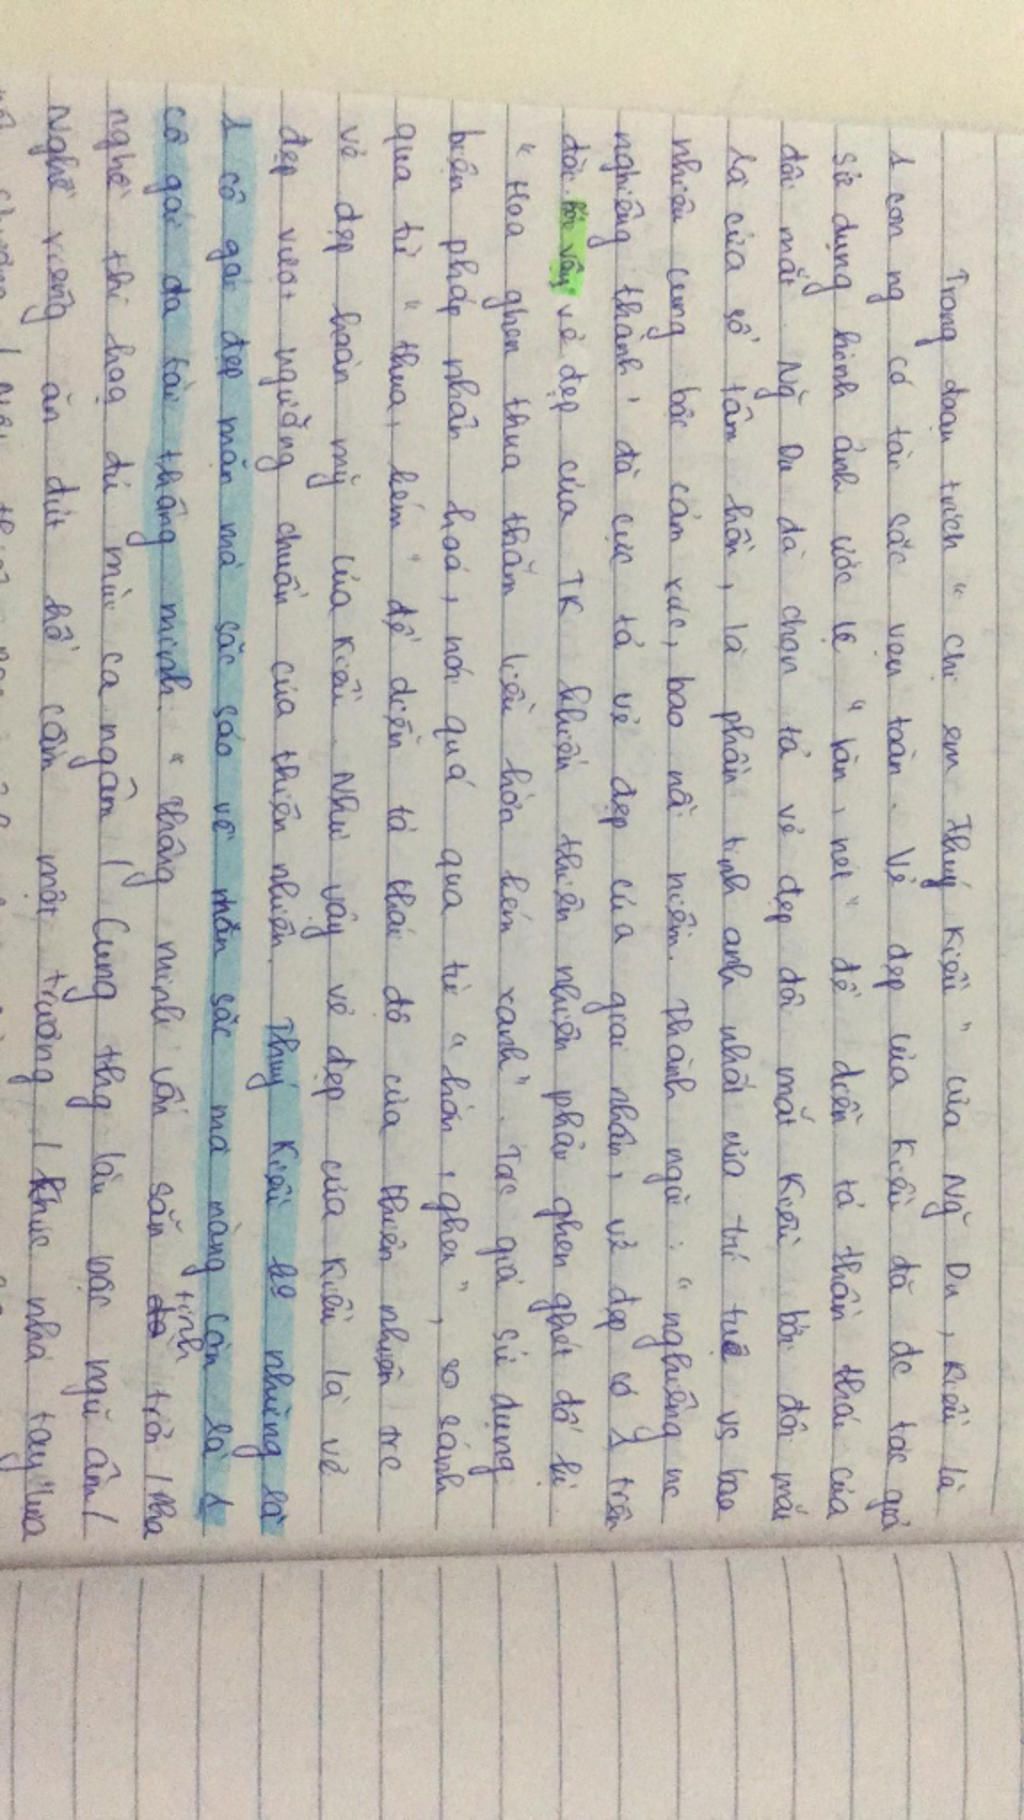 Trong đoạn trích " Chị em Thuý Kiều " của Ng~ Du, Kiều là
1 con ng có tài sắc vẹn toàn. Vẻ đẹp của Kiều đã đc tác giả
sử dụng hình ảnh ước lệ " làn, nét " để diễn tả thần thái của
đôi mắt. Ng~ Du đã chọn tả vẻ đẹp đôi mắt Kiều bởi đôi mắt
là cửa sổ tâm hồn, là phần tinh anh nhất của trí tuệ vs bao
nhiêu cung bậc cảm xúc, bao nỗi niềm. Thành ngữ : " nghiêng nc
nghiêng thành ' đã cực tả vẻ đẹp của giai nhân, vẻ đẹp có 1 trên
đời. bởi vậy vẻ đẹp của TK khiến thiên nhiên phải ghen ghét đố kị.
" Hoa ghen thua thắm liễu hờn kém xanh ". Tác giả sử dụng
biện pháp nhân hoá, nói quá qua từ " hờn, ghen ", so sánh
qua từ " thua, kém " để diễn tả thái độ của thiên nhiên trc
vẻ đẹp hoàn mỹ của Kiều. Như vậy vẻ đẹp của Kiều là vẻ
đẹp vượt ngưỡng chuẩn của thiên nhiên. Thuý Kiều ko những là
1 cô gái đẹp mặn mà sắc sảo về nhan sắc mà nàng còn là 1
cô gái đa tài thông minh. " Thông minh vốn sẵn tính trời / Pha
nghề thi hoạ đủ mùi ca ngâm / Cung thg làu bậc ngũ âm /
Nghề riêng ăn đứt hồ cầm một trương / Khúc nhà tay lựa